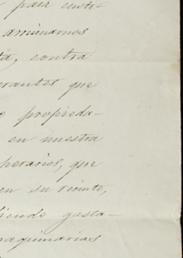 para custi-
arruinarnos
ia, contra
erantes que
propieda-
en nuestra
operarios, que
en su recinto,
diendo gusta-
maquinarias